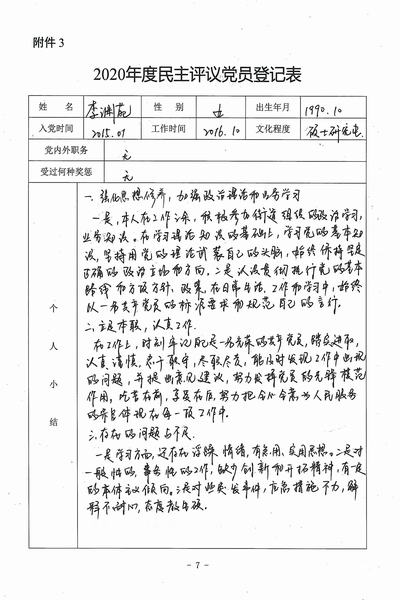 附件 3
2020年度民主评议党员登记表
姓 名 李渊苑 性 别 女 出生年月 1990.10
入党时间 2015.01 工作时间 2016.10 文化程度 硕士研究生
党内外职务 无
受过何种奖惩 无
个人小结
一、强化思想修养，加强政治理论和业务学习
一是，本人在工作之余，积极参加街道组织的政治学习，
业务知识。在学习理论知识的基础上，学习党的基本知
识，坚持用党的理论武装自己的头脑，始终保持坚定
正确的政治立场和方向。二是认真贯彻执行党的基本
路线和方针、政策，在日常生活、工作和学习中，始终
以一名共产党员的标准要求和规范自己的言行。
二、立足本职，认真工作。
在工作上，时刻牢记自己是一名光荣的共产党员，踏实进取，
认真谨慎，忠于职守，尽职尽责，能及时发现工作中出现
的问题，并提出意见建议，努力发挥党员的先锋模范
作用，吃苦在前，享受在后，努力把全心全意为人民服务
的宗旨体现在每一项工作中。
三、存在的问题与不足
一是学习方面，还存在浮躁情绪，有急用、实用思想。二是对
一般性的、事务性的工作，缺少创新和开拓精神，有一定
的本位主义倾向。三是对些突发事件，应急措施不力，解
释不耐心，态度较生硬。
- 7 -